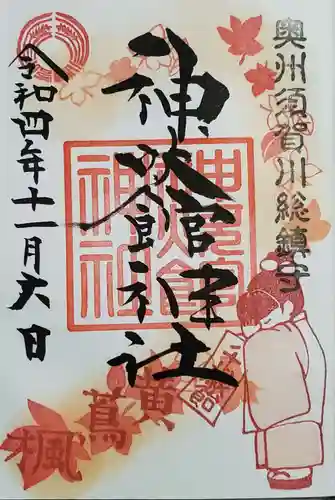 奥州須賀川総鎮守
神炊館神社
神炊館神社
令和四年十一月六日
黄
蔦
楓